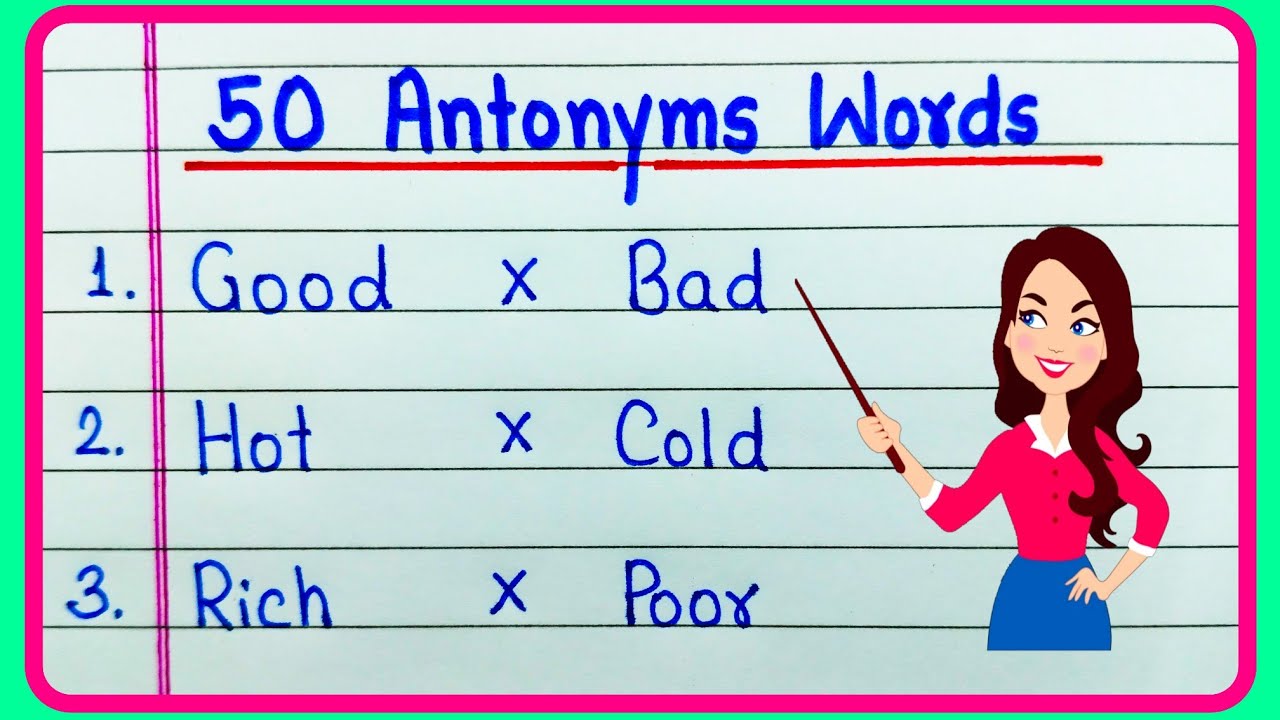 50 Antonyms Words
1. Good x Bad
2. Hot x Cold
3. Rich x Poor